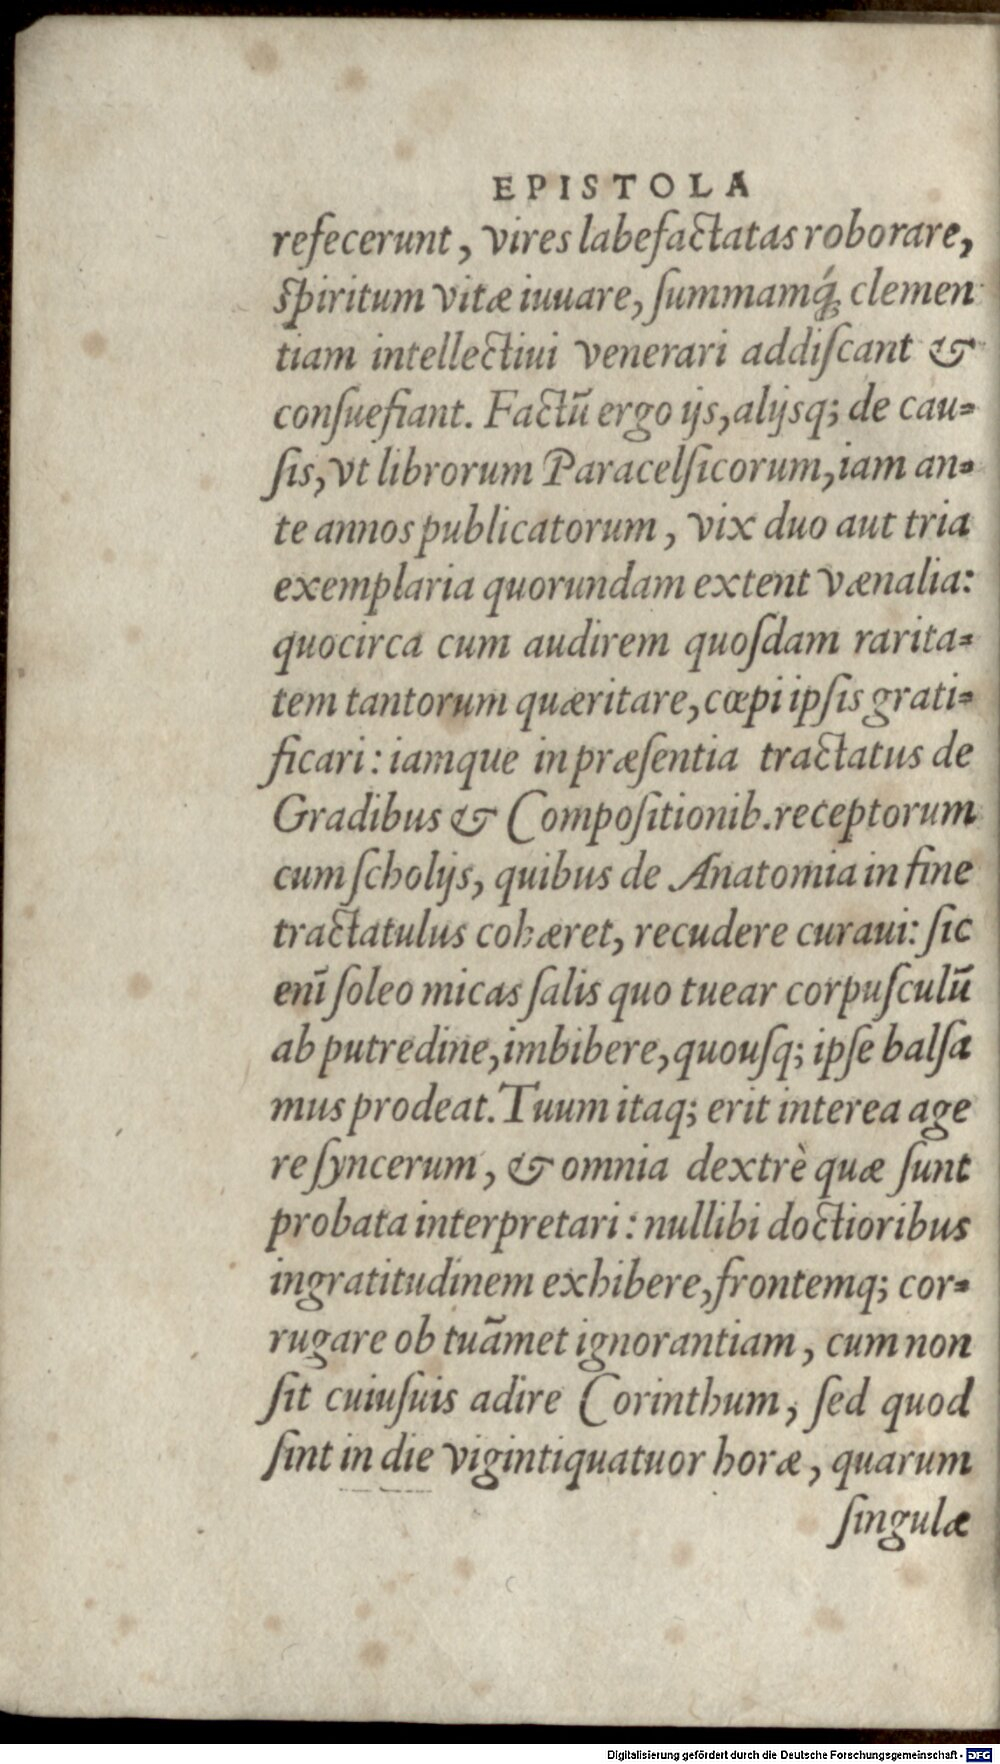 EPISTOLA
refecerunt, vires labefactatas roborare,
ſpiritum vitæ iuuare, ſummamq́; clemen
tiam intellectiui venerari addiſcant &
conſuefiant. Factũ ergo ijs, alijsq; de cau-
ſis, vt librorum Paracelſicorum, iam an-
te annos publicatorum, vix duo aut tria
exemplaria quorundam extent vænalia:
quocirca cum audirem quoſdam rarita-
tem tantorum quæritare, cœpi ipſis grati-
ficari: iamque in præſentia tractatus de
Gradibus & Compoſitionib. receptorum
cum ſcholijs, quibus de Anatomia in fine
tractatulus cohæret, recudere curaui: ſic
enĩ ſoleo micas ſalis quo tuear corpuſculũ
ab putredine, imbibere, quouſq; ipſe balſa
mus prodeat. Tuum itaq; erit interea age
re ſyncerum, & omnia dextrè quæ ſunt
probata interpretari: nullibi doctioribus
ingratitudinem exhibere, frontemq; cor-
rugare ob tuãmet ignorantiam, cum non
ſit cuiuſuis adire Corinthum, ſed quod
ſint in die vigintiquatuor horæ, quarum
ſingulæ
Digitalisierung gefördert durch die Deutsche Forschungsgemeinschaft - DFG